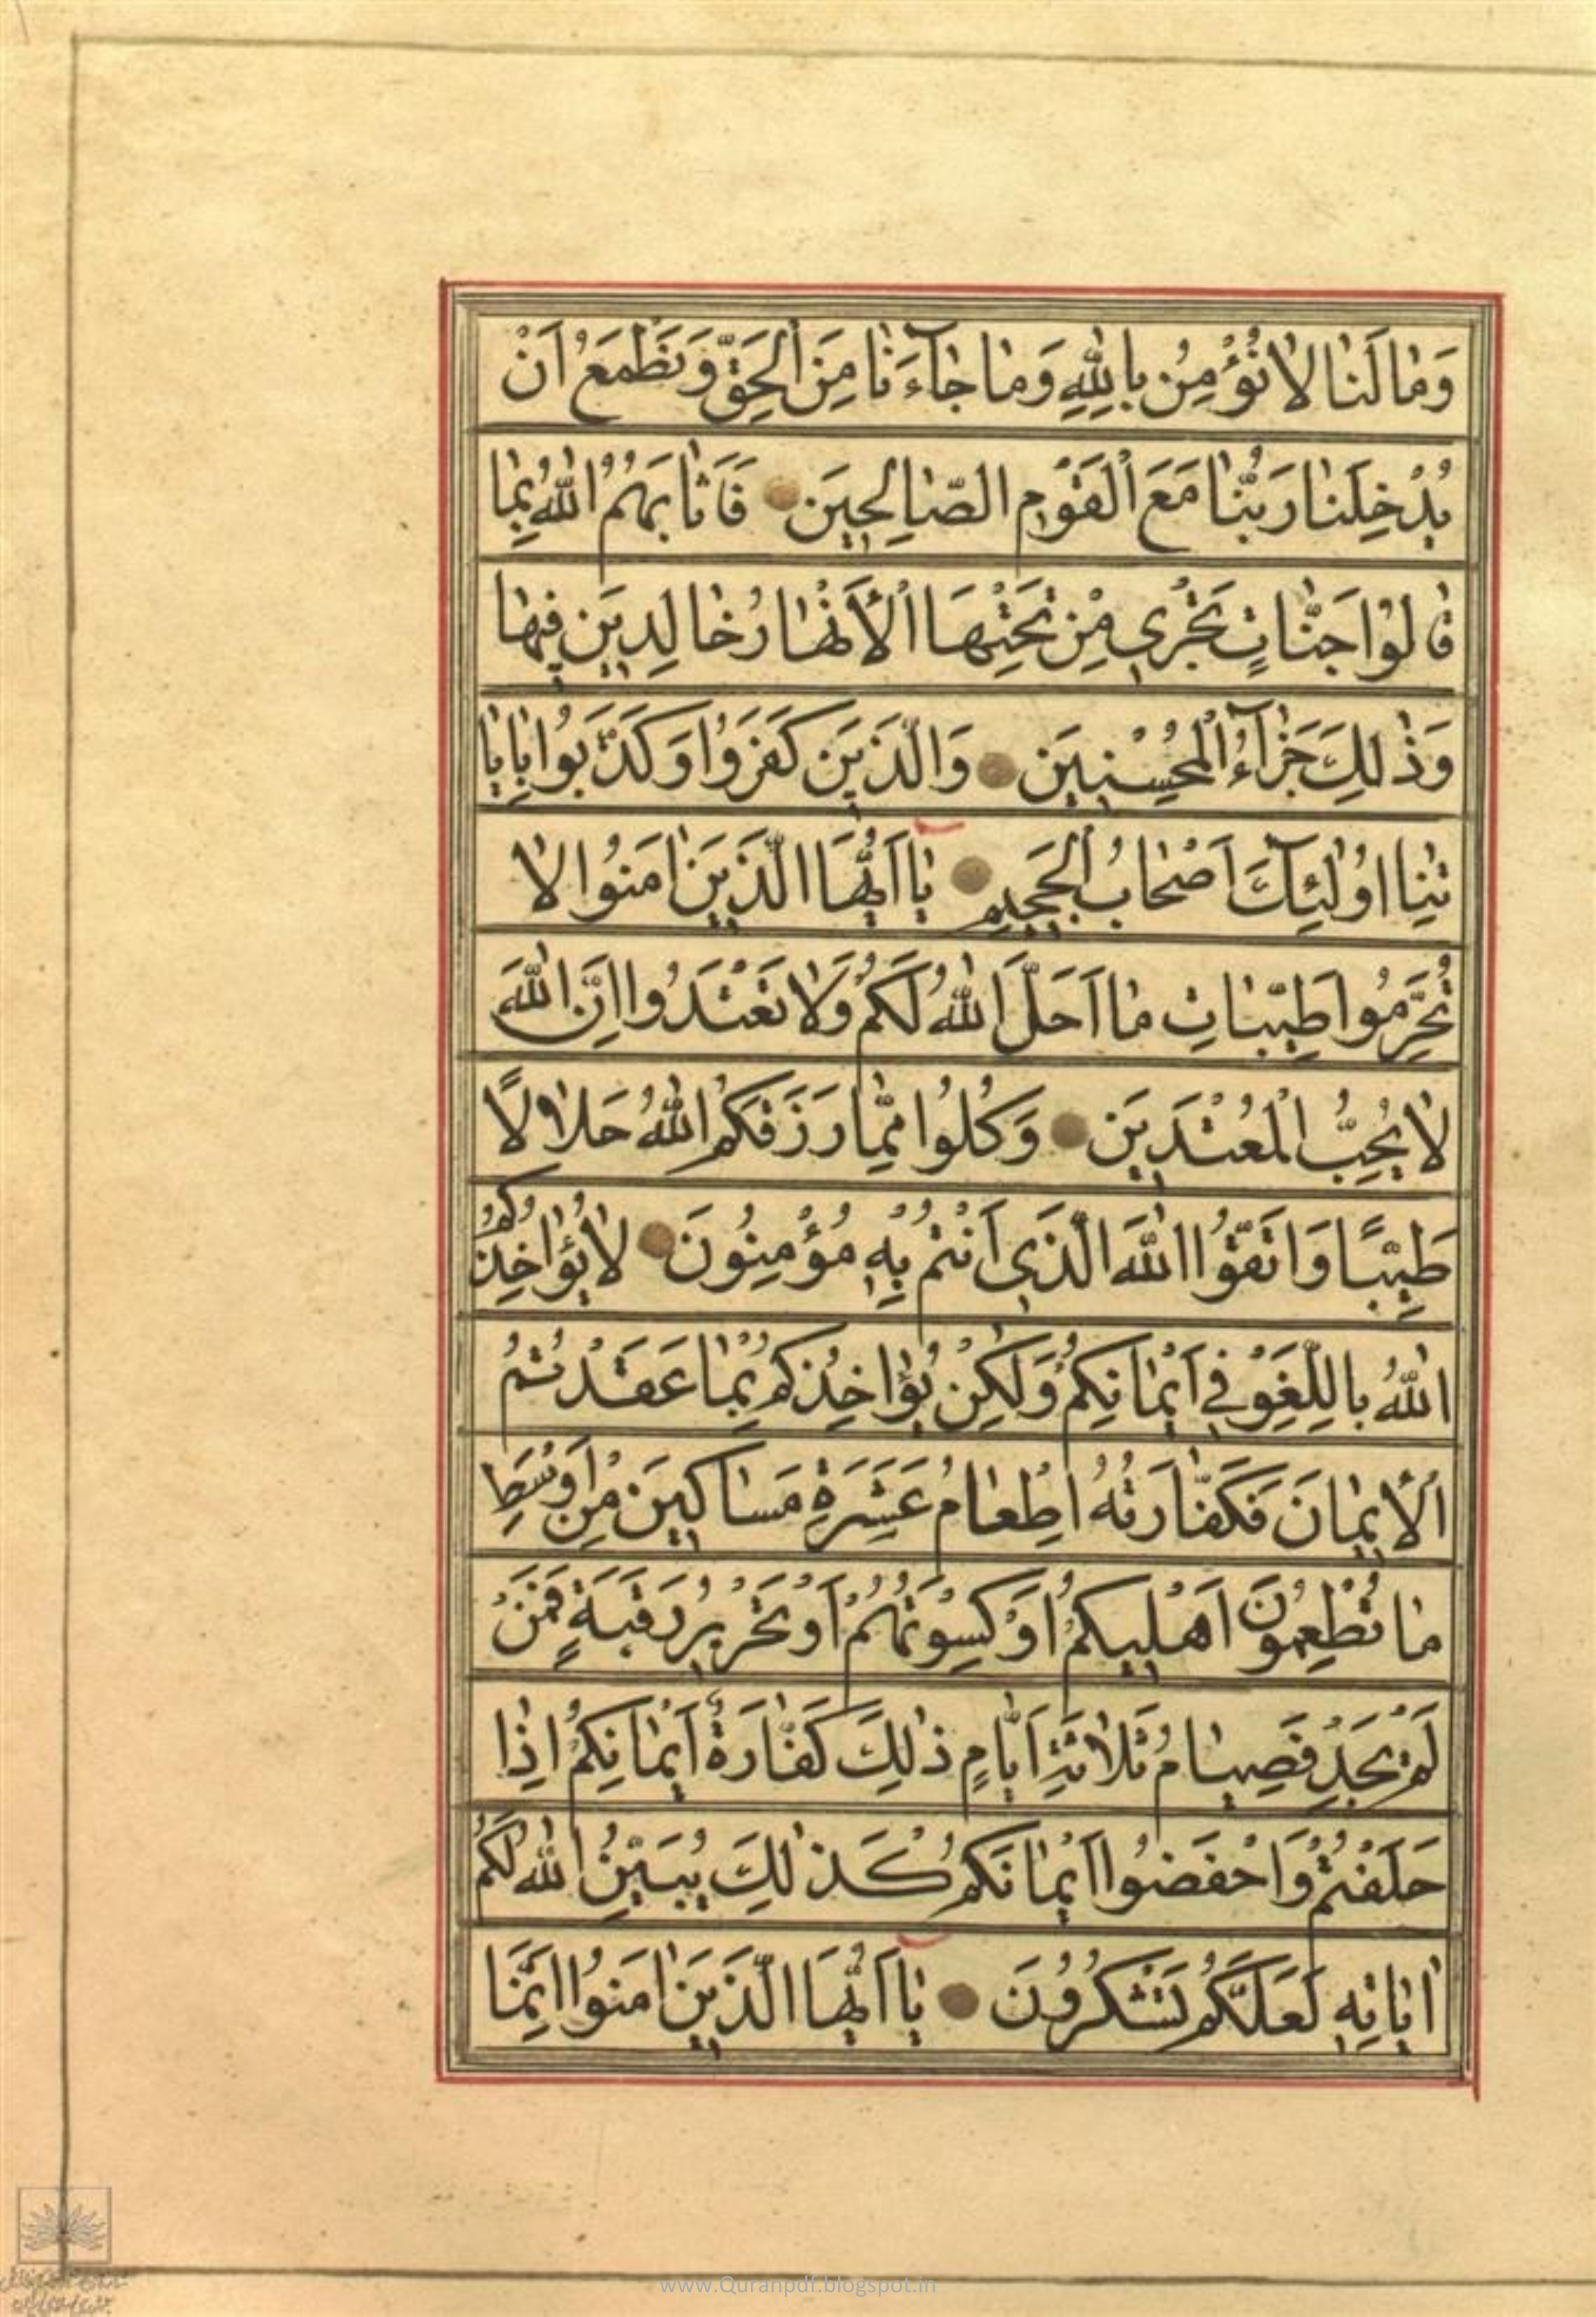 وَمٰا لَنٰا لٰا نُؤْمِنُ بِاللّٰهِ وَمٰا جٰآءَنٰا مِنَ الْحَقِّ وَنَطْمَعُ اَنْ
يُدْخِلَنٰا رَبُّنٰا مَعَ الْقَوْمِ الصّٰالِحِينَ فَاَثٰابَهُمُ اللّٰهُ بِمٰا
قٰالُوا جَنّٰاتٍ تَجْرِي مِنْ تَحْتِهَا الْأَنْهٰارُ خٰالِدِينَ فِيهٰا
وَذٰلِكَ جَزٰآءُ الْمُحْسِنِينَ وَالَّذِينَ كَفَرُوا وَكَذَّبُوا بِاٰيٰا
تِنٰا اُولٰئِكَ اَصْحٰابُ الْجَحِيمِ يٰا اَيُّهَا الَّذِينَ اٰمَنُوا لٰا
تُحَرِّمُوا طَيِّبٰاتِ مٰا اَحَلَّ اللّٰهُ لَكُمْ وَلٰا تَعْتَدُوا اِنَّ اللّٰهَ
لٰا يُحِبُّ الْمُعْتَدِينَ وَكُلُوا مِمّٰا رَزَقَكُمُ اللّٰهُ حَلٰالًا
طَيِّبًا وَاتَّقُوا اللّٰهَ الَّذِي اَنْتُمْ بِهِ مُؤْمِنُونَ لٰا يُؤٰاخِذُكُمُ
اللّٰهُ بِاللَّغْوِ فِي اَيْمٰانِكُمْ وَلٰكِنْ يُؤٰاخِذُكُمْ بِمٰا عَقَّدْتُمُ
الْأَيْمٰانَ فَكَفّٰارَتُهُ اِطْعٰامُ عَشَرَةِ مَسٰاكِينَ مِنْ اَوْسَطِ
مٰا تُطْعِمُونَ اَهْلِيكُمْ اَوْ كِسْوَتُهُمْ اَوْ تَحْرِيرُ رَقَبَةٍ فَمَنْ
لَمْ يَجِدْ فَصِيٰامُ ثَلٰاثَةِ اَيّٰامٍ ذٰلِكَ كَفّٰارَةُ اَيْمٰانِكُمْ اِذٰا
حَلَفْتُمْ وَاحْفَضُوا اَيْمٰانَكُمْ كَذٰلِكَ يُبَيِّنُ اللّٰهُ لَكُمْ
اٰيٰاتِهِ لَعَلَّكُمْ تَشْكُرُونَ يٰا اَيُّهَا الَّذِينَ اٰمَنُوا اِنَّمَا
www.Quranpdf.blogspot.in